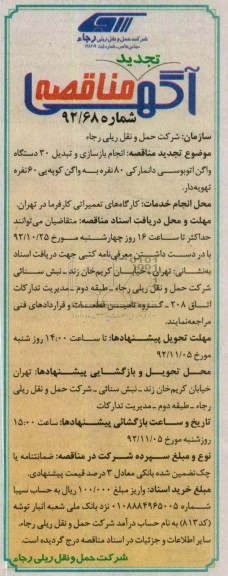 شرکت حمل و نقل ریلی رجاء
تجدید
آگهی مناقصه
شماره ۹۲/۶۸
سازمان: شرکت حمل و نقل ریلی رجاء
موضوع تجدید مناقصه: انجام بازسازی و تبدیل ۳۰ دستگاه
واگن اتوبوسی دانمارکی ۸۰ نفره به واگن کوپه‌یی ۶۰ نفره
تهویه‌دار.
محل انجام خدمات: کارگاه‌های تعمیراتی کارفرما در تهران.
مهلت و محل دریافت اسناد مناقصه: متقاضیان می‌توانند
حداکثر تا ساعت ۱۶ روز چهارشنبه مورخ ۹۲/۱۰/۲۵
با در دست داشتن معرفی‌نامه کتبی جهت دریافت اسناد
به‌نشانی: تهران - خیابان کریم‌خان زند - نبش سنائی
شرکت حمل و نقل ریلی رجاء - طبقه دوم - مدیریت تدارکات
اتاق ۲۰۸ - گروه تامین قطعات و قراردادهای فنی
مراجعه‌نمایند.
مهلت تحویل پیشنهادها: تا ساعت ۱۴:۰۰ روز شنبه
مورخ ۹۲/۱۱/۰۵
محل تحویل و بازگشایی پیشنهادها: تهران
خیابان کریم‌خان زند - نبش سنائی - شرکت حمل و نقل ریلی
رجاء - طبقه دوم - مدیریت تدارکات
تاریخ و ساعت بازگشائی پیشنهادها: ساعت ۱۵:۰۰
روزشنبه مورخ ۹۲/۱۱/۰۵
نوع و مبلغ سپرده شرکت در مناقصه: ضمانتنامه یا
چک‌تضمین شده بانکی معادل ۳ درصد قیمت پیشنهادی.
مبلغ خرید اسناد: واریز مبلغ ۱۰۰/۰۰۰ ریال به حساب سیبا
شماره ۰۱۰۸۸۸۴۹۶۵۰۰۵ نزد بانک ملی شعبه انبار توشه
(کد ۸۱۳) به نام حساب درآمد شرکت حمل و نقل ریلی رجاء.
سایر اطلاعات و جزئیات در اسناد مناقصه درج گردیده است.
شرکت حمل و نقل ریلی رجاء